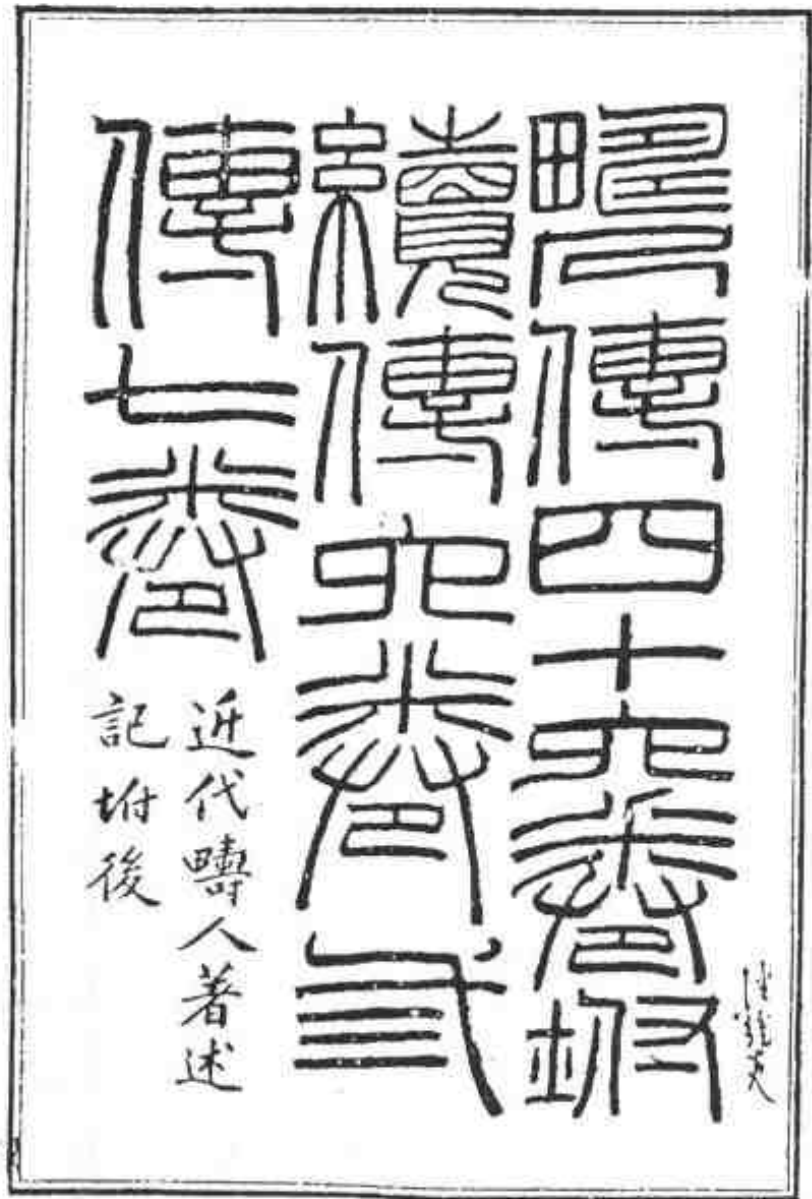 疇人傳四十六卷坿
續傳六卷弎
傳七卷
近代疇人著述
記坿後